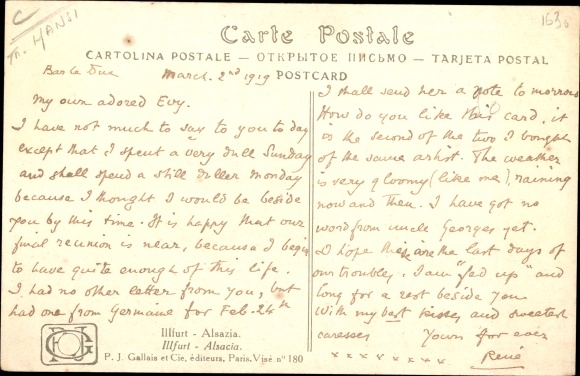 C
Ill. HANSI
163
Carte Postale
CARTOLINA POSTALE — ОТКРЫТОЕ ПИСЬМО — TARJETA POSTAL
POSTCARD
Bar le Duc March. 2nd 1919
My own adored Evy.
I have not much to say to you to day
except that I spent a very dull Sunday
and shall spend a still duller Monday
because I thought I would be beside
you by this time. It is happy that our
final reunion is near, because I begin
to have quite enough of this life.
I had no other letter from you, but
had one from Germaine for Feb. 24th
I shall send her a note to morrow
How do you like this card, it
is the second of the two I bought
of the same artist. The weather
is very gloomy (like me), raining
now and then. I have got no
word from uncle Georges yet.
I hope these are the last days of
our troubles. I am "fed up" and
long for a rest beside you
With my best kisses and sweetest
caresses Yours for ever
x x x x x x x x René
Illfurt - Alsazia.
Illfurt - Alsacia.
P. J. Gallais et Cie, éditeurs, Paris. Visé nº 180